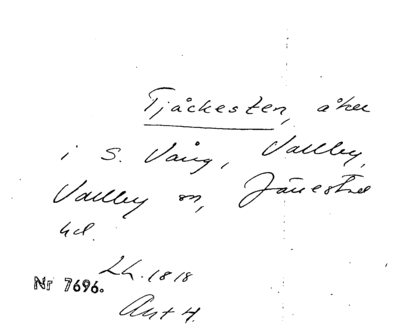 Tjäckesten, åker
i S. Vång, Vallby,
Vallby sn, Järrestad
hd.
Lh. 1818
Nr 7696.
Akt 4.